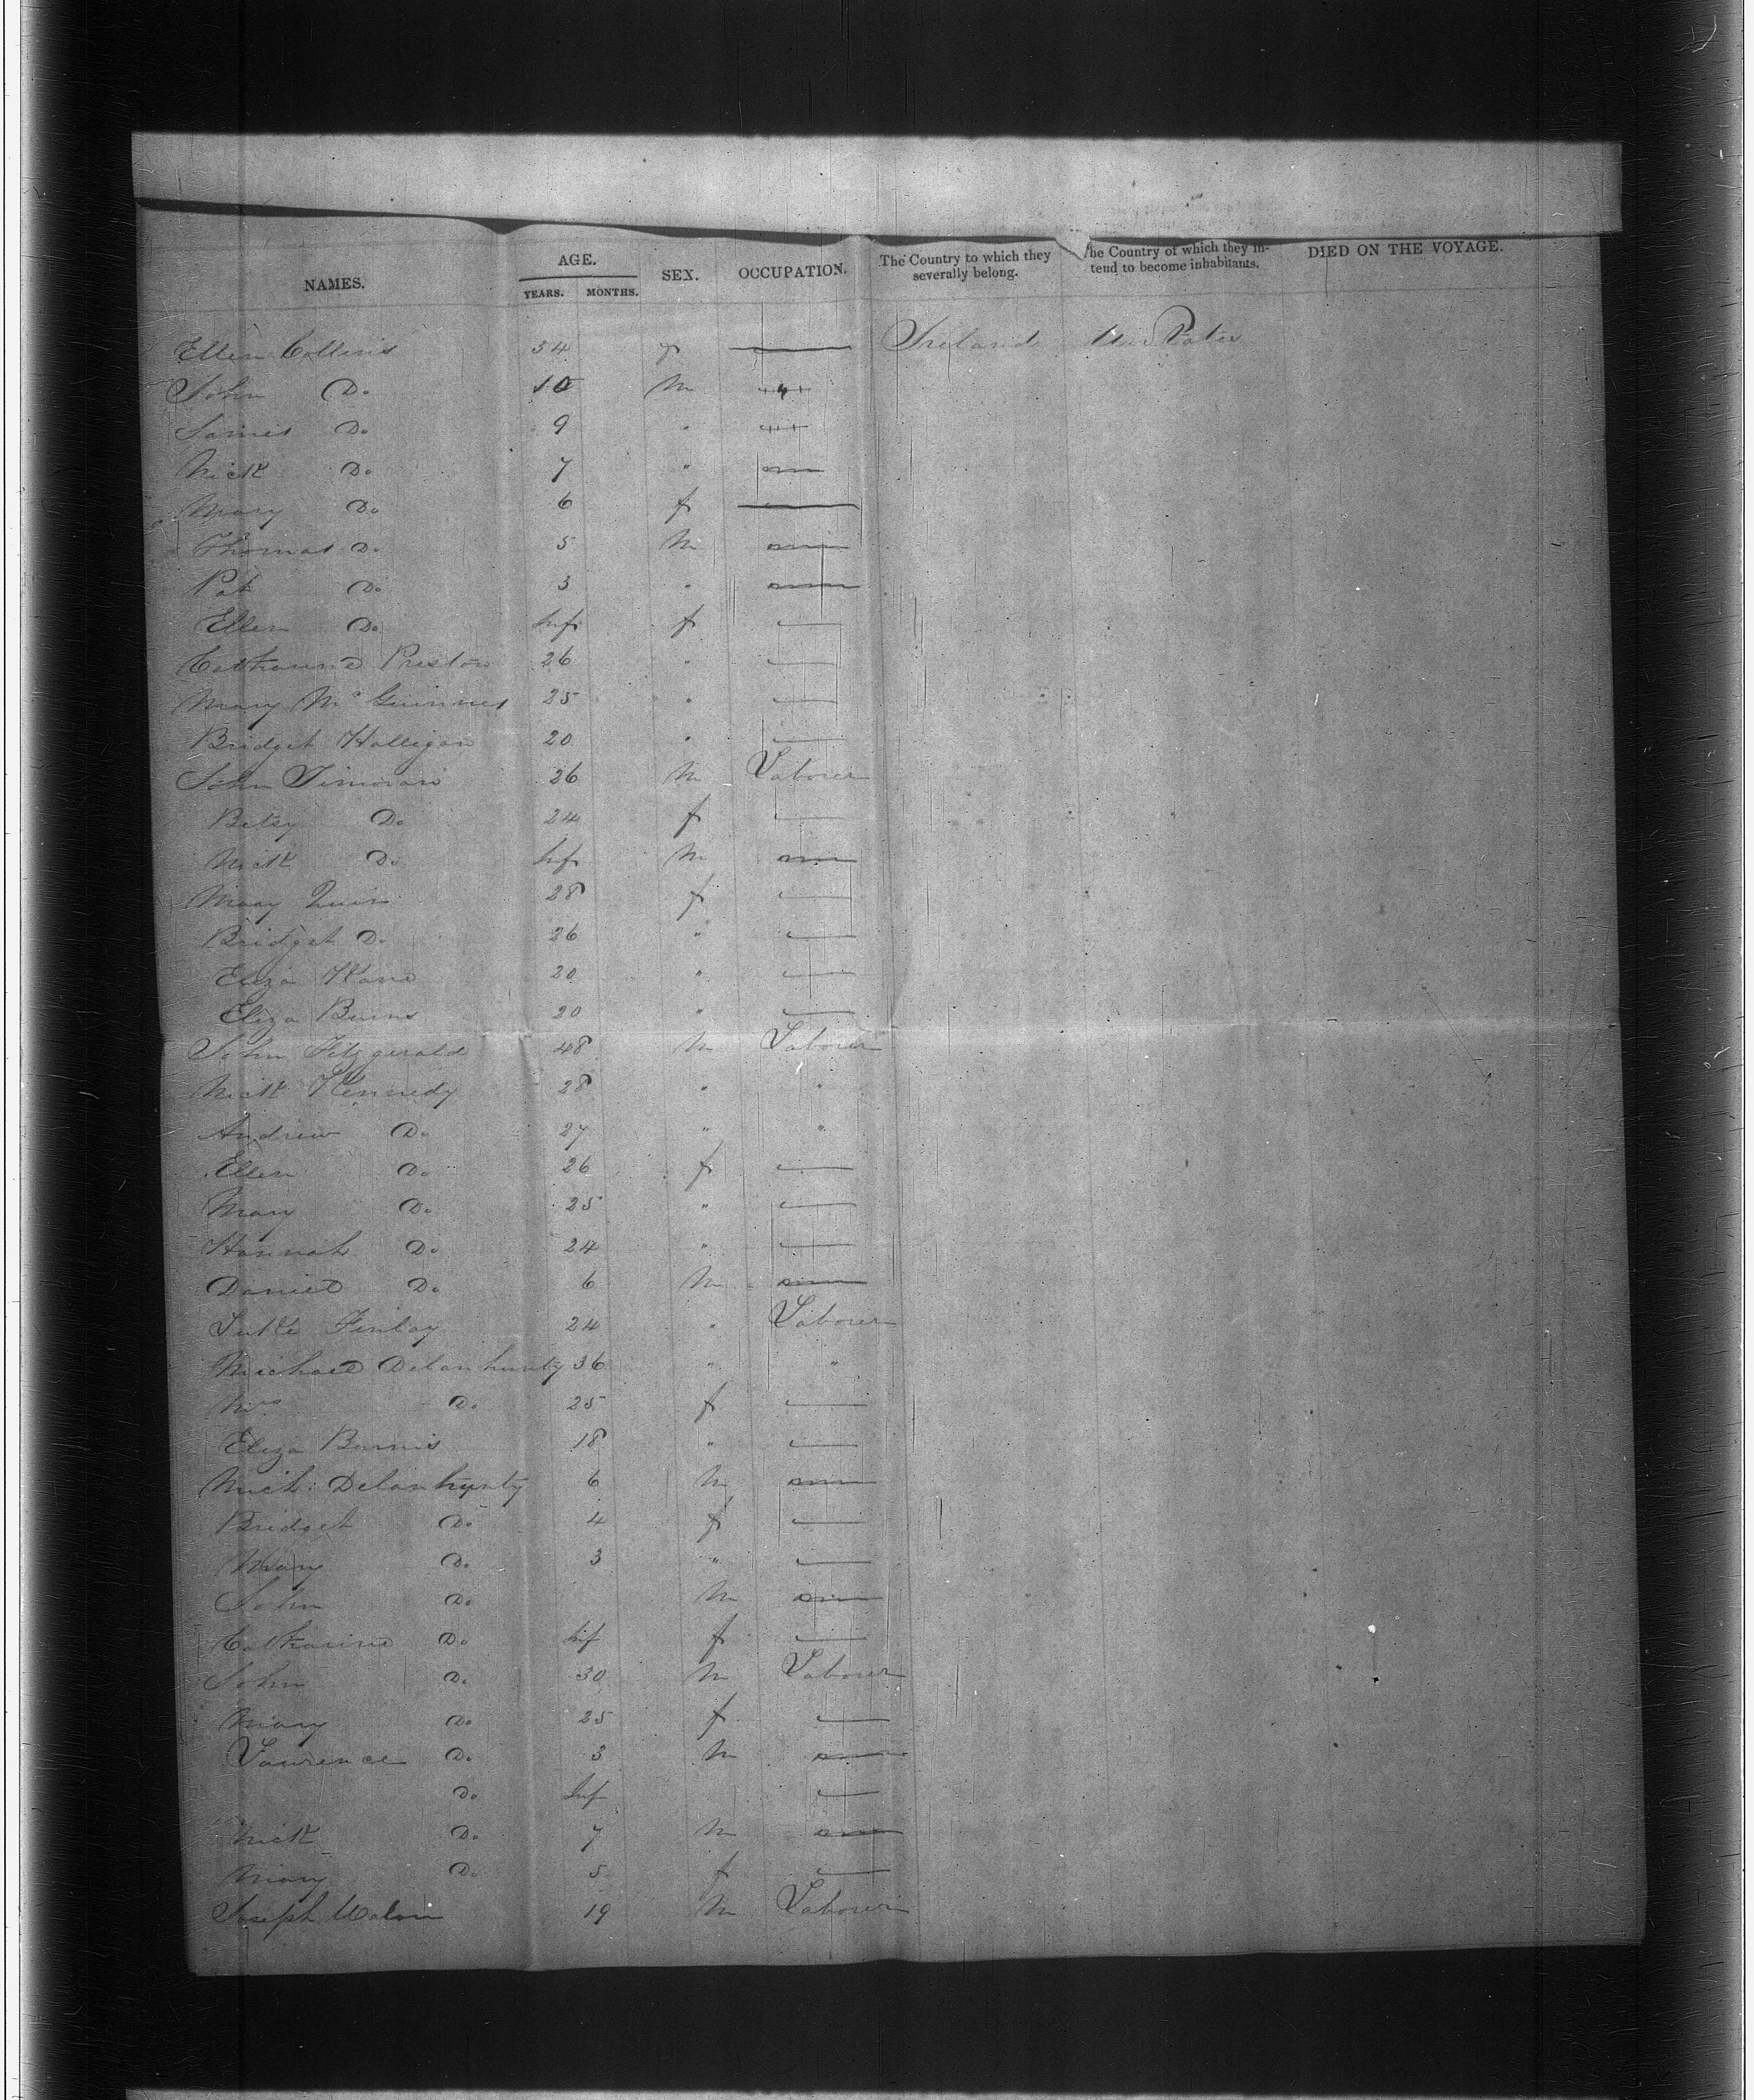 NAMES. AGE. SEX. OCCUPATION. The Country to which they severally belong. he Country of which they in-tend to become inhabitants. DIED ON THE VOYAGE.
YEARS. MONTHS.
Ellen Collins 34 f — Ireland Un States
John Do 10 M "
James Do 9 "
Mick Do 7 "
Mary Do 6 f —
Thomas Do 5 M
Pat Do 3 "
Ellen Do Inf f —
Catharine Preston 26 " —
Mary Mc Guinnes 25 " —
Bridget Halligan 20 " —
John Timoran 26 M Laborer
Betsy Do 24 f —
Mick Do Inf M
Mary Quin 28 f —
Bridget Do 26 " —
Eliza Kane 20 " —
Eliza Burns 20 " —
John Fitzgerald 48 M Laborer
Mick Kennedy 28 " "
Andrew Do 27 " "
Ellen Do 26 f —
Mary Do 25 " —
Hannah Do 24 " —
Daniel Do 6 M
Luke Finlay 24 " Laborer
Michael Delanhunty 36 " "
Mrs Do 25 f —
Eliza Burnis 18 " —
Mich: Delanhunty 6 M
Bridget Do 4 f —
Mary Do 3 " —
John Do M
Catharine Do Inf f —
John Do 30 M Laborer
Mary Do 25 f —
Lawrence Do 3 M
Do Inf —
Mick Do 7 M
Mary Do 5 f —
Joseph 19 M Laborer